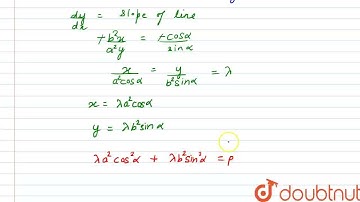 dy/dx = slope of line
+b²x/a²y = +cosα/sinα
x/a²cosα = y/b²sinα = λ
x = λa²cosα
y = λb²sinα
λa²cos²α + λb²sin²α = p
doubtnut